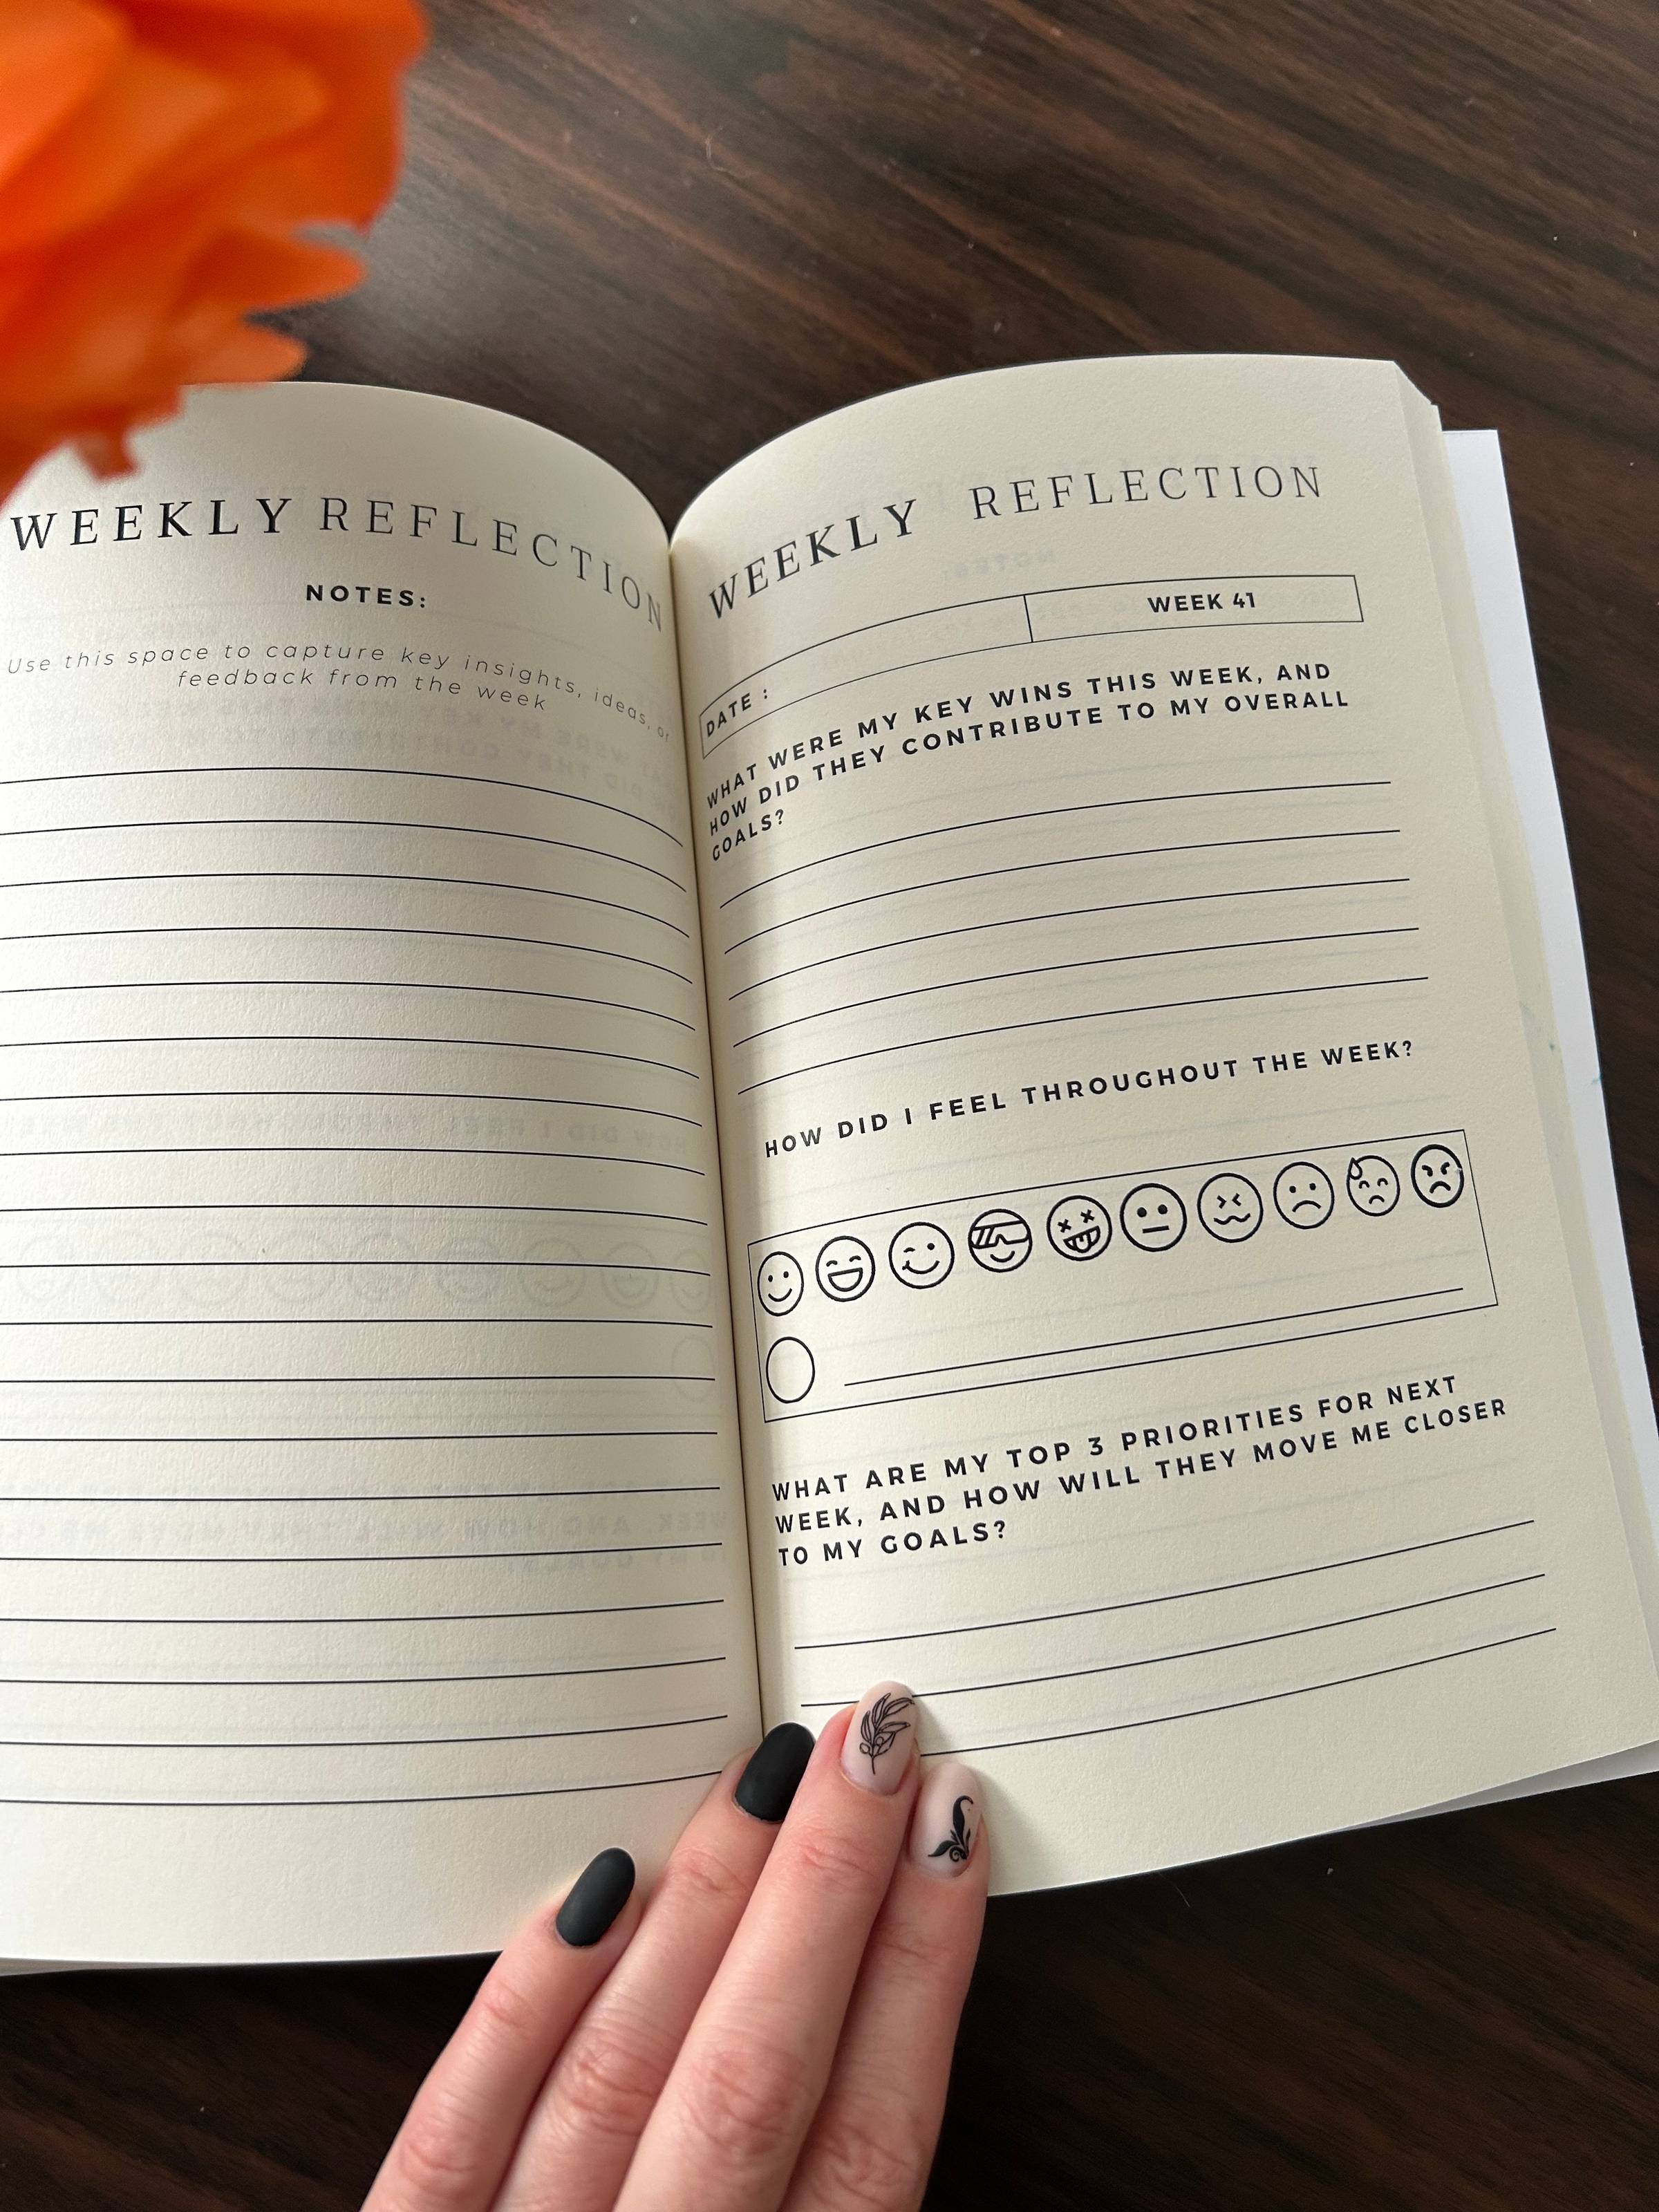 WEEKLY REFLECTION
NOTES:
Use this space to capture key insights, ideas, or
feedback from the week
WEEKLY REFLECTION
DATE :
WEEK 41
WHAT WERE MY KEY WINS THIS WEEK, AND
HOW DID THEY CONTRIBUTE TO MY OVERALL
GOALS?
HOW DID I FEEL THROUGHOUT THE WEEK?
WHAT ARE MY TOP 3 PRIORITIES FOR NEXT
WEEK, AND HOW WILL THEY MOVE ME CLOSER
TO MY GOALS?